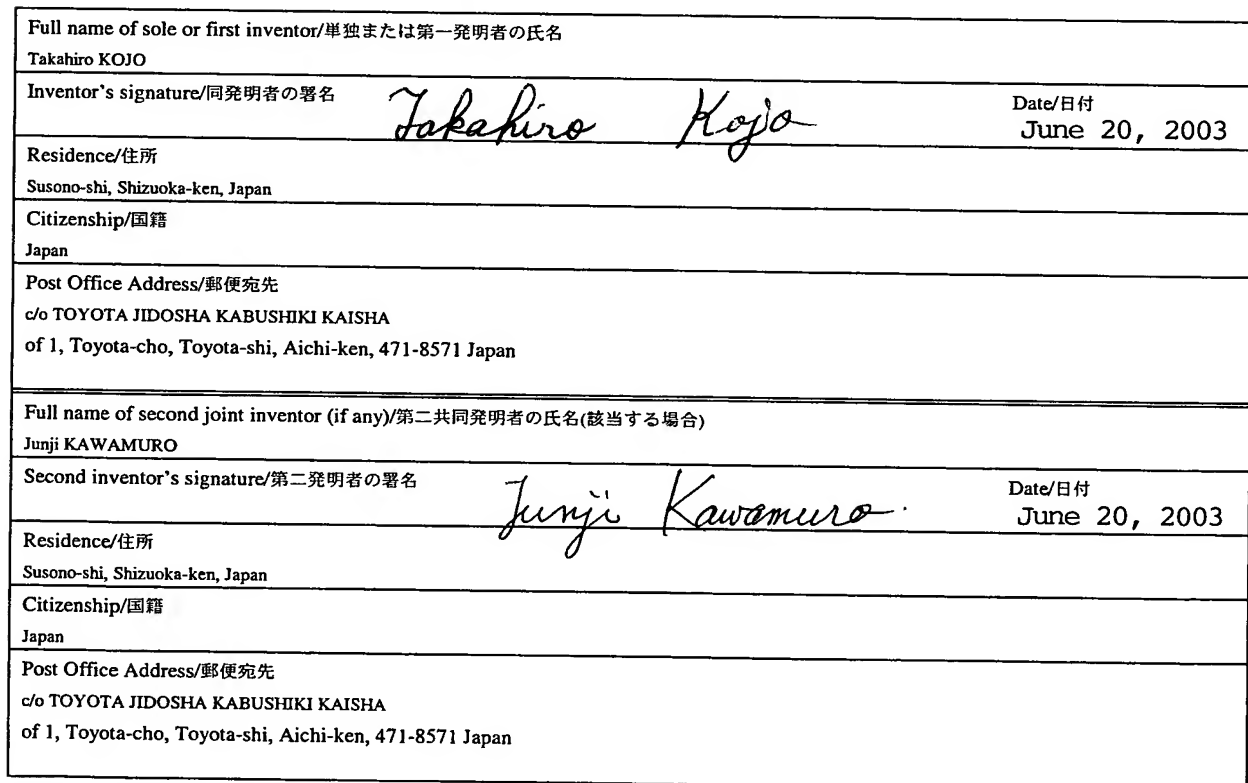 Full name of sole or first inventor/単独または第一発明者の氏名
Takahiro KOJO
Inventor's signature/同発明者の署名 Takahiro Kojo Date/日付
June 20, 2003
Residence/住所
Susono-shi, Shizuoka-ken, Japan
Citizenship/国籍
Japan
Post Office Address/郵便宛先
c/o TOYOTA JIDOSHA KABUSHIKI KAISHA
of 1, Toyota-cho, Toyota-shi, Aichi-ken, 471-8571 Japan
Full name of second joint inventor (if any)/第二共同発明者の氏名(該当する場合)
Junji KAWAMURO
Second inventor's signature/第二発明者の署名 Junji Kawamuro. Date/日付
June 20, 2003
Residence/住所
Susono-shi, Shizuoka-ken, Japan
Citizenship/国籍
Japan
Post Office Address/郵便宛先
c/o TOYOTA JIDOSHA KABUSHIKI KAISHA
of 1, Toyota-cho, Toyota-shi, Aichi-ken, 471-8571 Japan